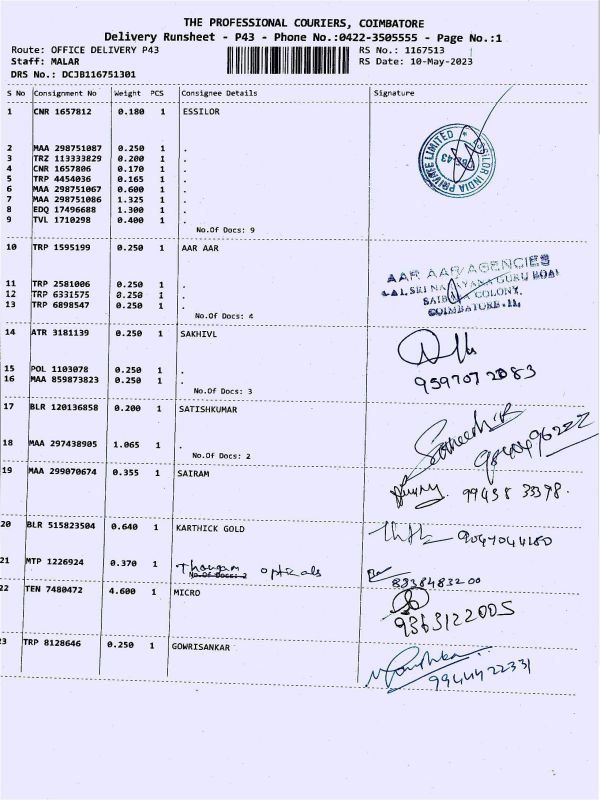 THE PROFESSIONAL COURIERS, COIMBATORE
Delivery Runsheet - P43 - Phone No.:0422-3505555 - Page No.:1
Route: OFFICE DELIVERY P43 RS No.: 1167513
Staff: MALAR RS Date: 10-May-2023
DRS No.: DCJB116751301
S No Consignment No Weight PCS Consignee Details Signature
1 CNR 1657812 0.180 1 ESSILOR
2 MAA 298751087 0.250 1 .
3 TRZ 113333829 0.200 1 .
4 CNR 1657806 0.170 1 .
5 TRP 4454036 0.165 1 .
6 MAA 298751067 0.600 1 .
7 MAA 298751086 1.325 1 .
8 EDQ 17496688 1.300 1 .
9 TVL 1710298 0.400 1 .
No.Of Docs: 9
10 TRP 1595199 0.250 1 AAR AAR
AAR AAR AGENCIES
11 TRP 2581006 0.250 1 .
12 TRP 6331575 0.250 1 .
13 TRP 6898547 0.250 1 .
COLONY,
COIMBATORE-11,
No.Of Docs: 4
14 ATR 3181139 0.250 1 SAKHIVL
15 POL 1103078 0.250 1 .
16 MAA 859873823 0.250 1 .
9597072083
No.Of Docs: 3
17 BLR 120136858 0.200 1 SATISHKUMAR
18 MAA 297438905 1.065 1 .
No.Of Docs: 2
9840496222
19 MAA 299070674 0.355 1 SAIRAM
99438 33398.
20 BLR 515823504 0.640 1 KARTHICK GOLD
9047044180
21 MTP 1226924 0.370 1 Thangam opticals
No.Of Docs: 2
8338483200
22 TEN 7480472 4.600 1 MICRO
9363122005
23 TRP 8128646 0.250 1 GOWRISANKAR
9944422331